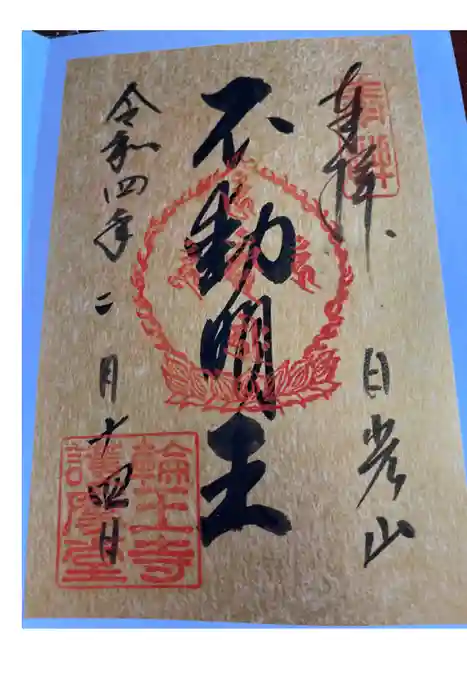 奉拝
日光山
不動明王
令和四年二月十四日
輪王寺
護摩堂